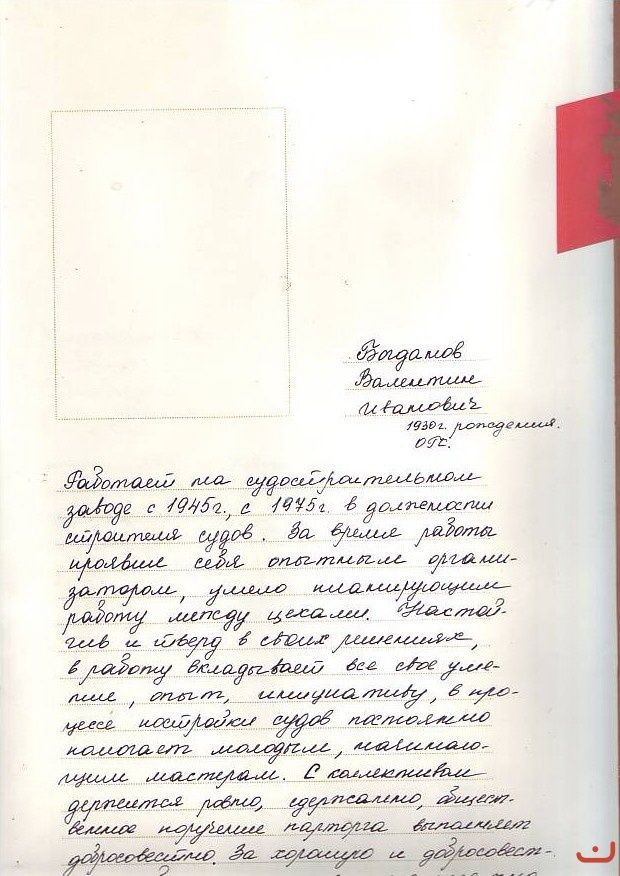 Богданов
Валентин
Иванович
1930г. рождения.
ОТК.
Работает на судостроительном
заводе с 1945г., с 1975г. в должности
строителя судов. За время работы
проявил себя опытным органи-
затором, умело планирующим
работу между цехами. Настой-
чив и тверд в своих решениях,
в работу вкладывает все свое уме-
ние, опыт, инициативу, в про-
цессе постройки судов постоянно
помогает молодым, начинаю-
щим мастерам. С коллективом
держится ровно, сдержанно, общест-
венное поручение парторга выполняет
добросовестно. За хорошую и добросовест-